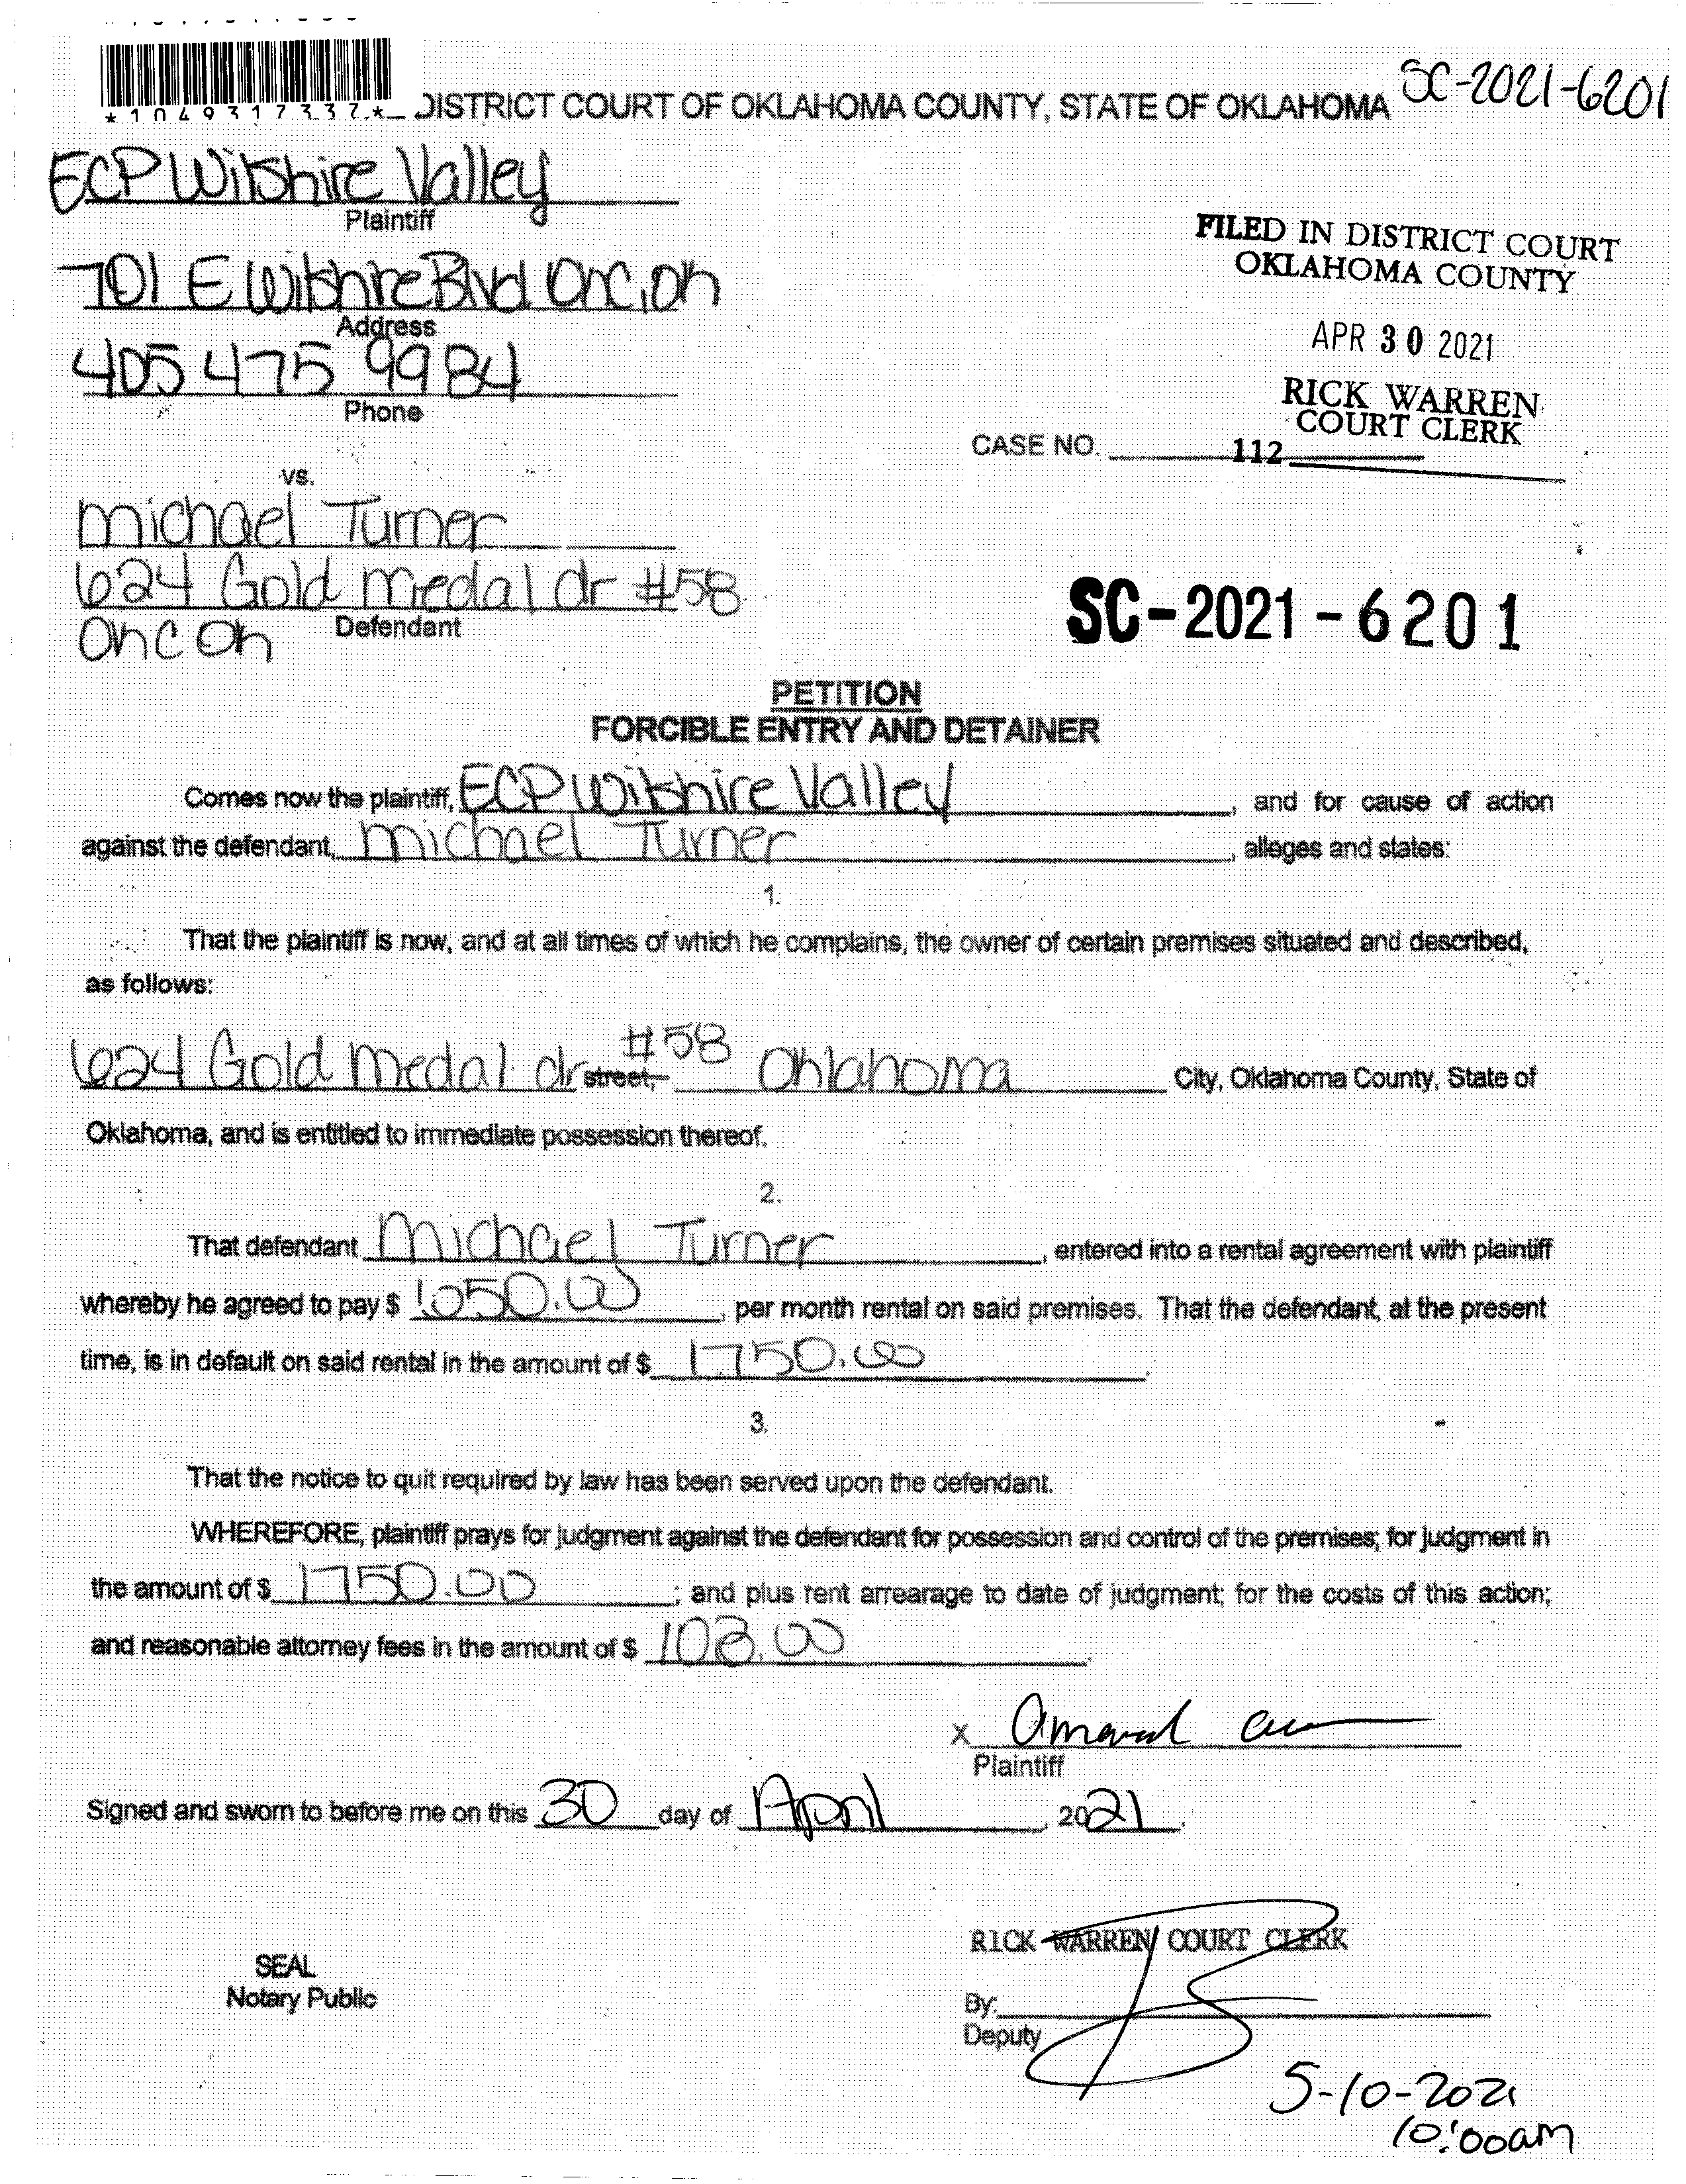 *1049317337*
DISTRICT COURT OF OKLAHOMA COUNTY, STATE OF OKLAHOMA
SC-2021-6201
ECP Wilshire Valley
Plaintiff
701 E Wilshire Blvd OKC, OK
Address
405 475 9984
Phone
FILED IN DISTRICT COURT
OKLAHOMA COUNTY
APR 30 2021
RICK WARREN
COURT CLERK
CASE NO. 112
vs.
Michael Turner
624 Gold Medal dr #58
OKC OK
Defendant
SC-2021-6201
PETITION
FORCIBLE ENTRY AND DETAINER
Comes now the plaintiff, ECP Wilshire Valley, and for cause of action
against the defendant, Michael Turner, alleges and states:
1.
That the plaintiff is now, and at all times of which he complains, the owner of certain premises situated and described,
as follows:
624 Gold Medal dr street, #58 Oklahoma City, Oklahoma County, State of
Oklahoma, and is entitled to immediate possession thereof.
2.
That defendant Michael Turner, entered into a rental agreement with plaintiff
whereby he agreed to pay $ 1050.00, per month rental on said premises. That the defendant, at the present
time, is in default on said rental in the amount of $ 1750.00.
3.
That the notice to quit required by law has been served upon the defendant.
WHEREFORE, plaintiff prays for judgment against the defendant for possession and control of the premises; for judgment in
the amount of $ 1750.00; and plus rent arrearage to date of judgment; for the costs of this action;
and reasonable attorney fees in the amount of $ 108.00.
X
Plaintiff
Signed and sworn to before me on this 30 day of April, 2021.
RICK WARREN COURT CLERK
SEAL
Notary Public
By:
Deputy
5-10-2021
10:00am